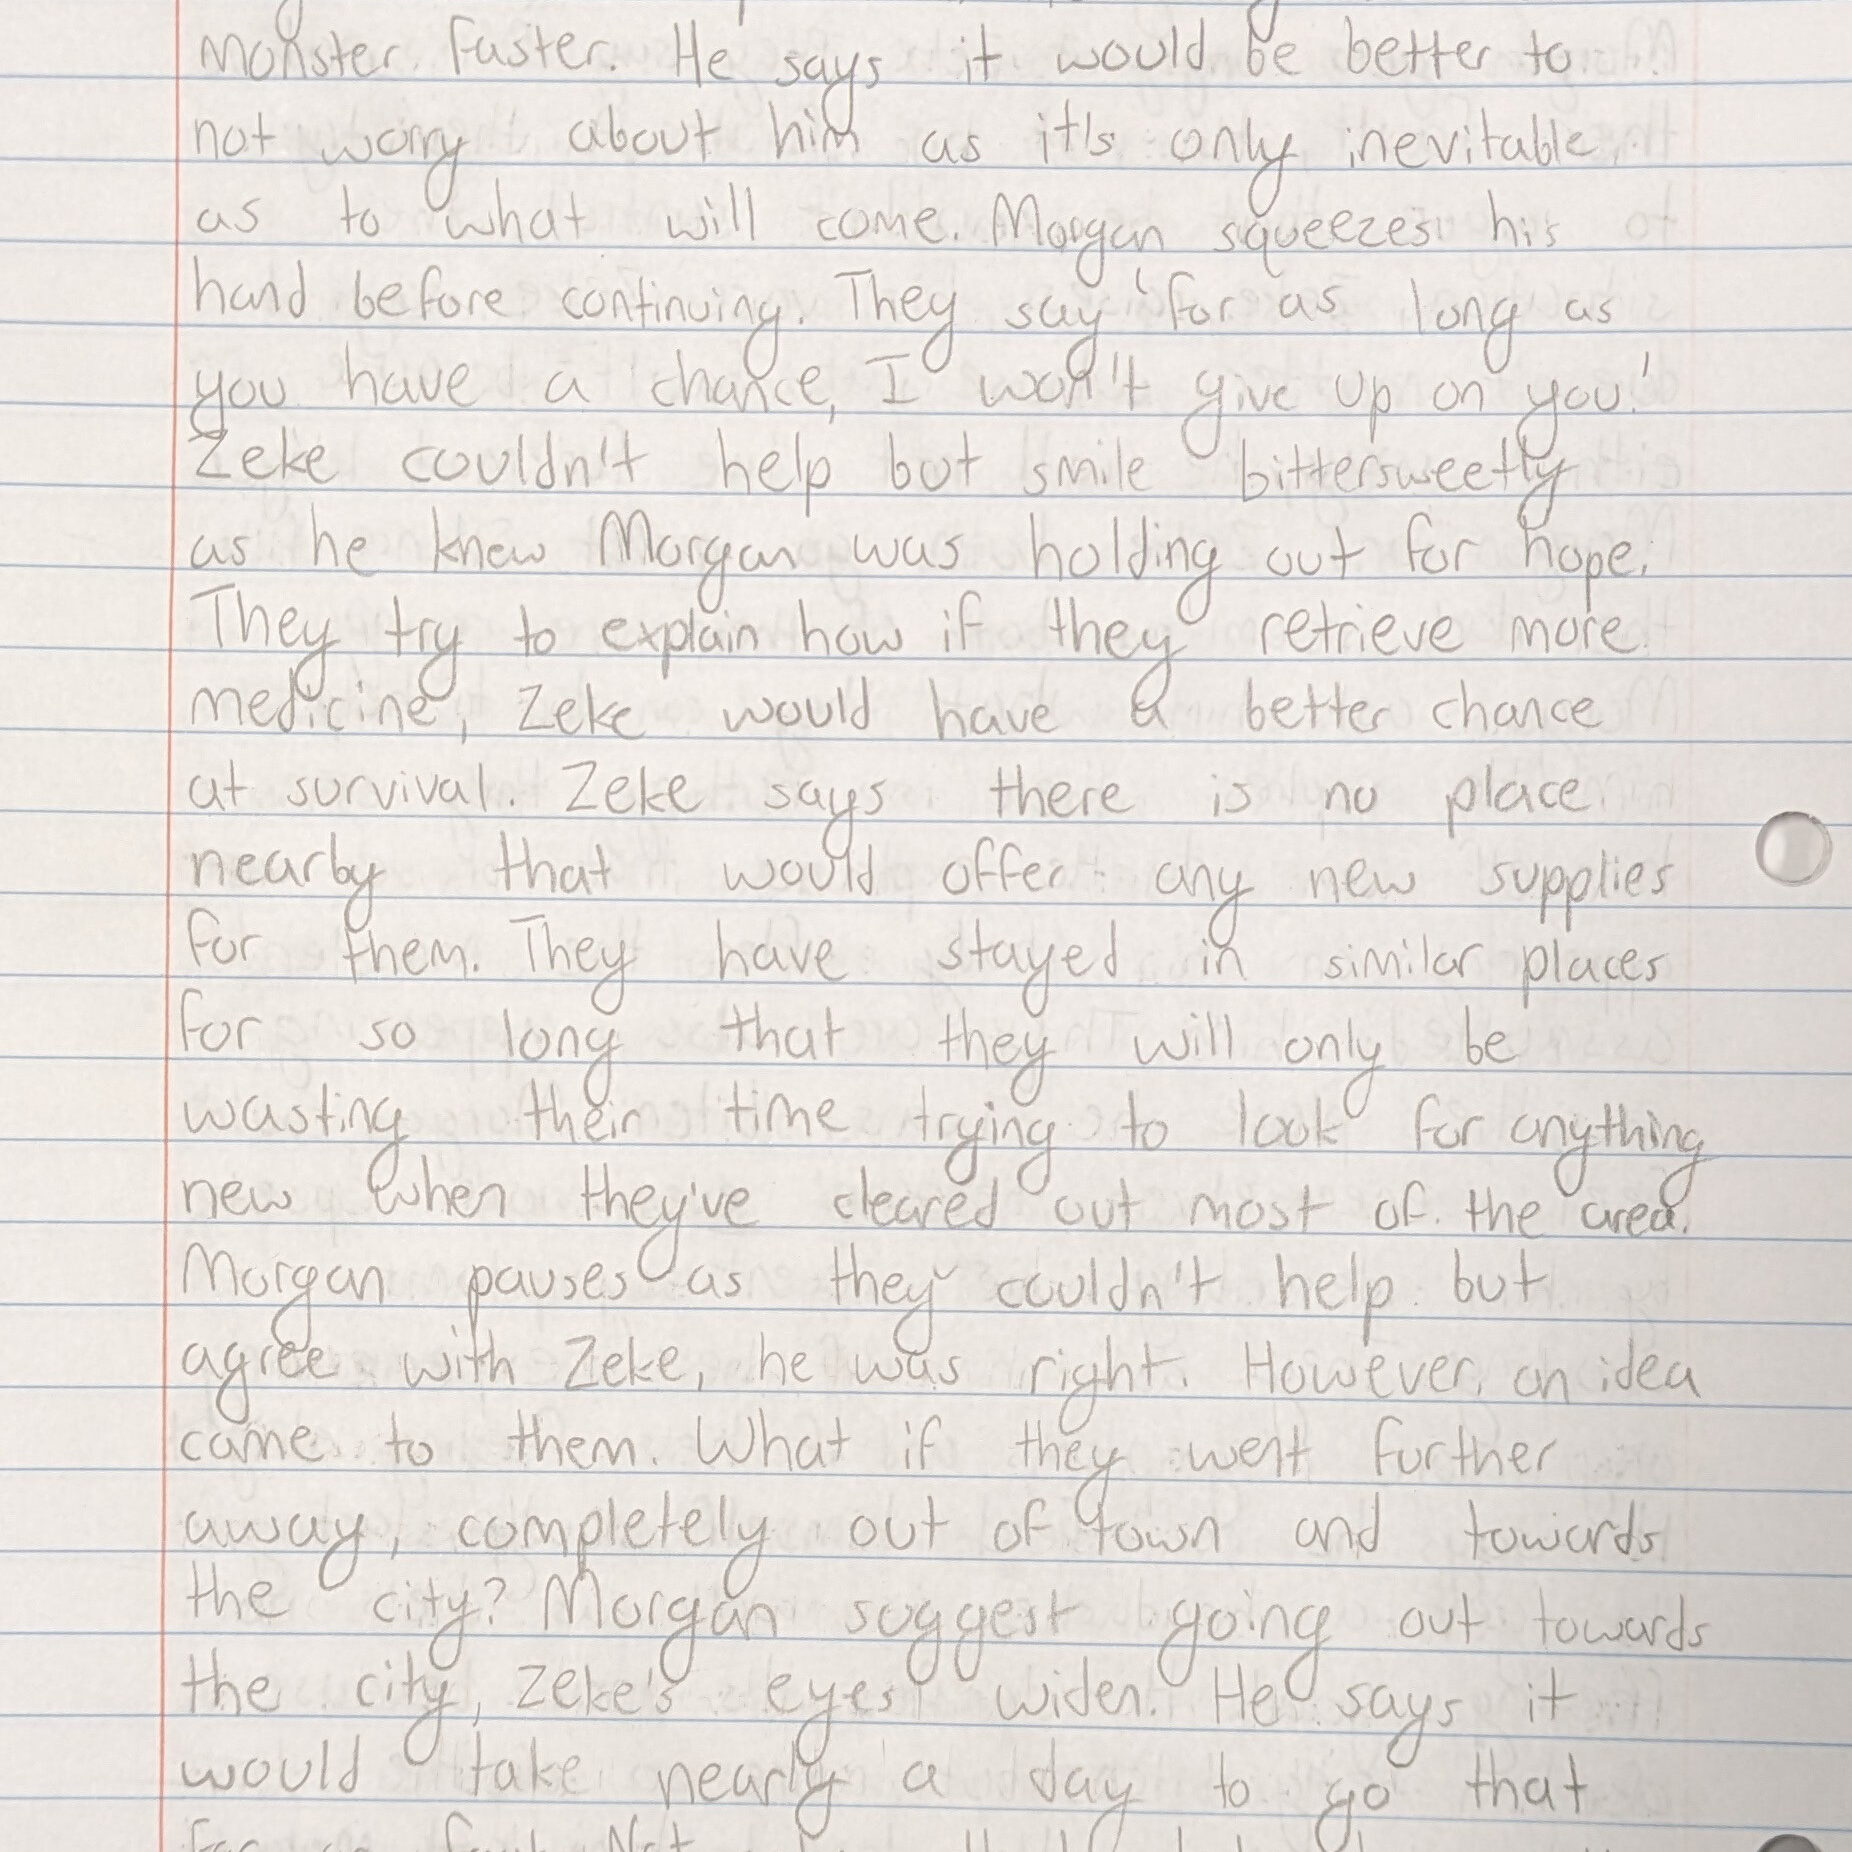 monster faster. He says it would be better to
not worry about him as it's only inevitable
as to what will come. Morgan squeezes his
hand before continuing. They say 'for as long as
you have a chance, I won't give up on you.'
Zeke couldn't help but smile bittersweetly
as he knew Morgan was holding out for hope.
They try to explain how if they retrieve more
medicine, Zeke would have a better chance
at survival. Zeke says there is no place
nearby that would offer any new supplies
for them. They have stayed in similar places
for so long that they will only be
wasting their time trying to look for anything
new when they've cleared out most of the area.
Morgan pauses as they couldn't help but
agree with Zeke, he was right. However, an idea
came to them. What if they went further
away, completely out of town and towards
the city? Morgan suggest going out towards
the city, Zeke's eyes widen. He says it
would take nearly a day to go that